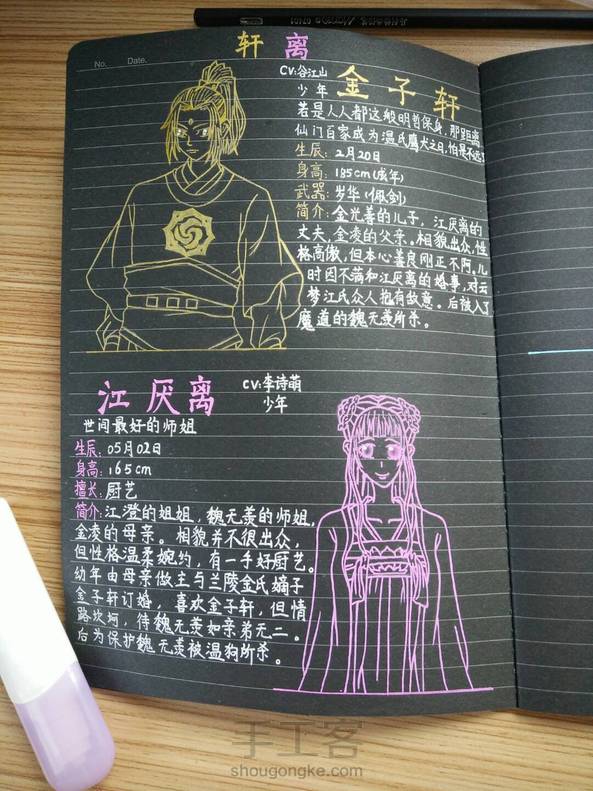 轩离
No. Date.
CV:谷江山
少年
金子轩
若是人人都这般明哲保身，那距离
仙门百家成为温氏鹰犬之日，怕是不远！
生辰：2月20日
身高：185cm(成年)
武器：岁华(佩剑)
简介：金光善的儿子，江厌离的
丈夫，金凌的父亲。相貌出众，性
格高傲，但本心善良刚正不阿。儿
时因不满和江厌离的婚事，对云
梦江氏众人抱有敌意。后被入了
魔道的魏无羡所杀。
江厌离
CV:李诗萌
少年
世间最好的师姐
生辰：05月02日
身高：165cm
擅长：厨艺
简介：江澄的姐姐，魏无羡的师姐，
金凌的母亲。相貌并不很出众，
但性格温柔婉约，有一手好厨艺。
幼年由母亲做主与兰陵金氏嫡子
金子轩订婚，喜欢金子轩，但情
路坎坷，待魏无羡如亲弟无二。
后为保护魏无羡被温狗所杀。
手工客
shougongke.com